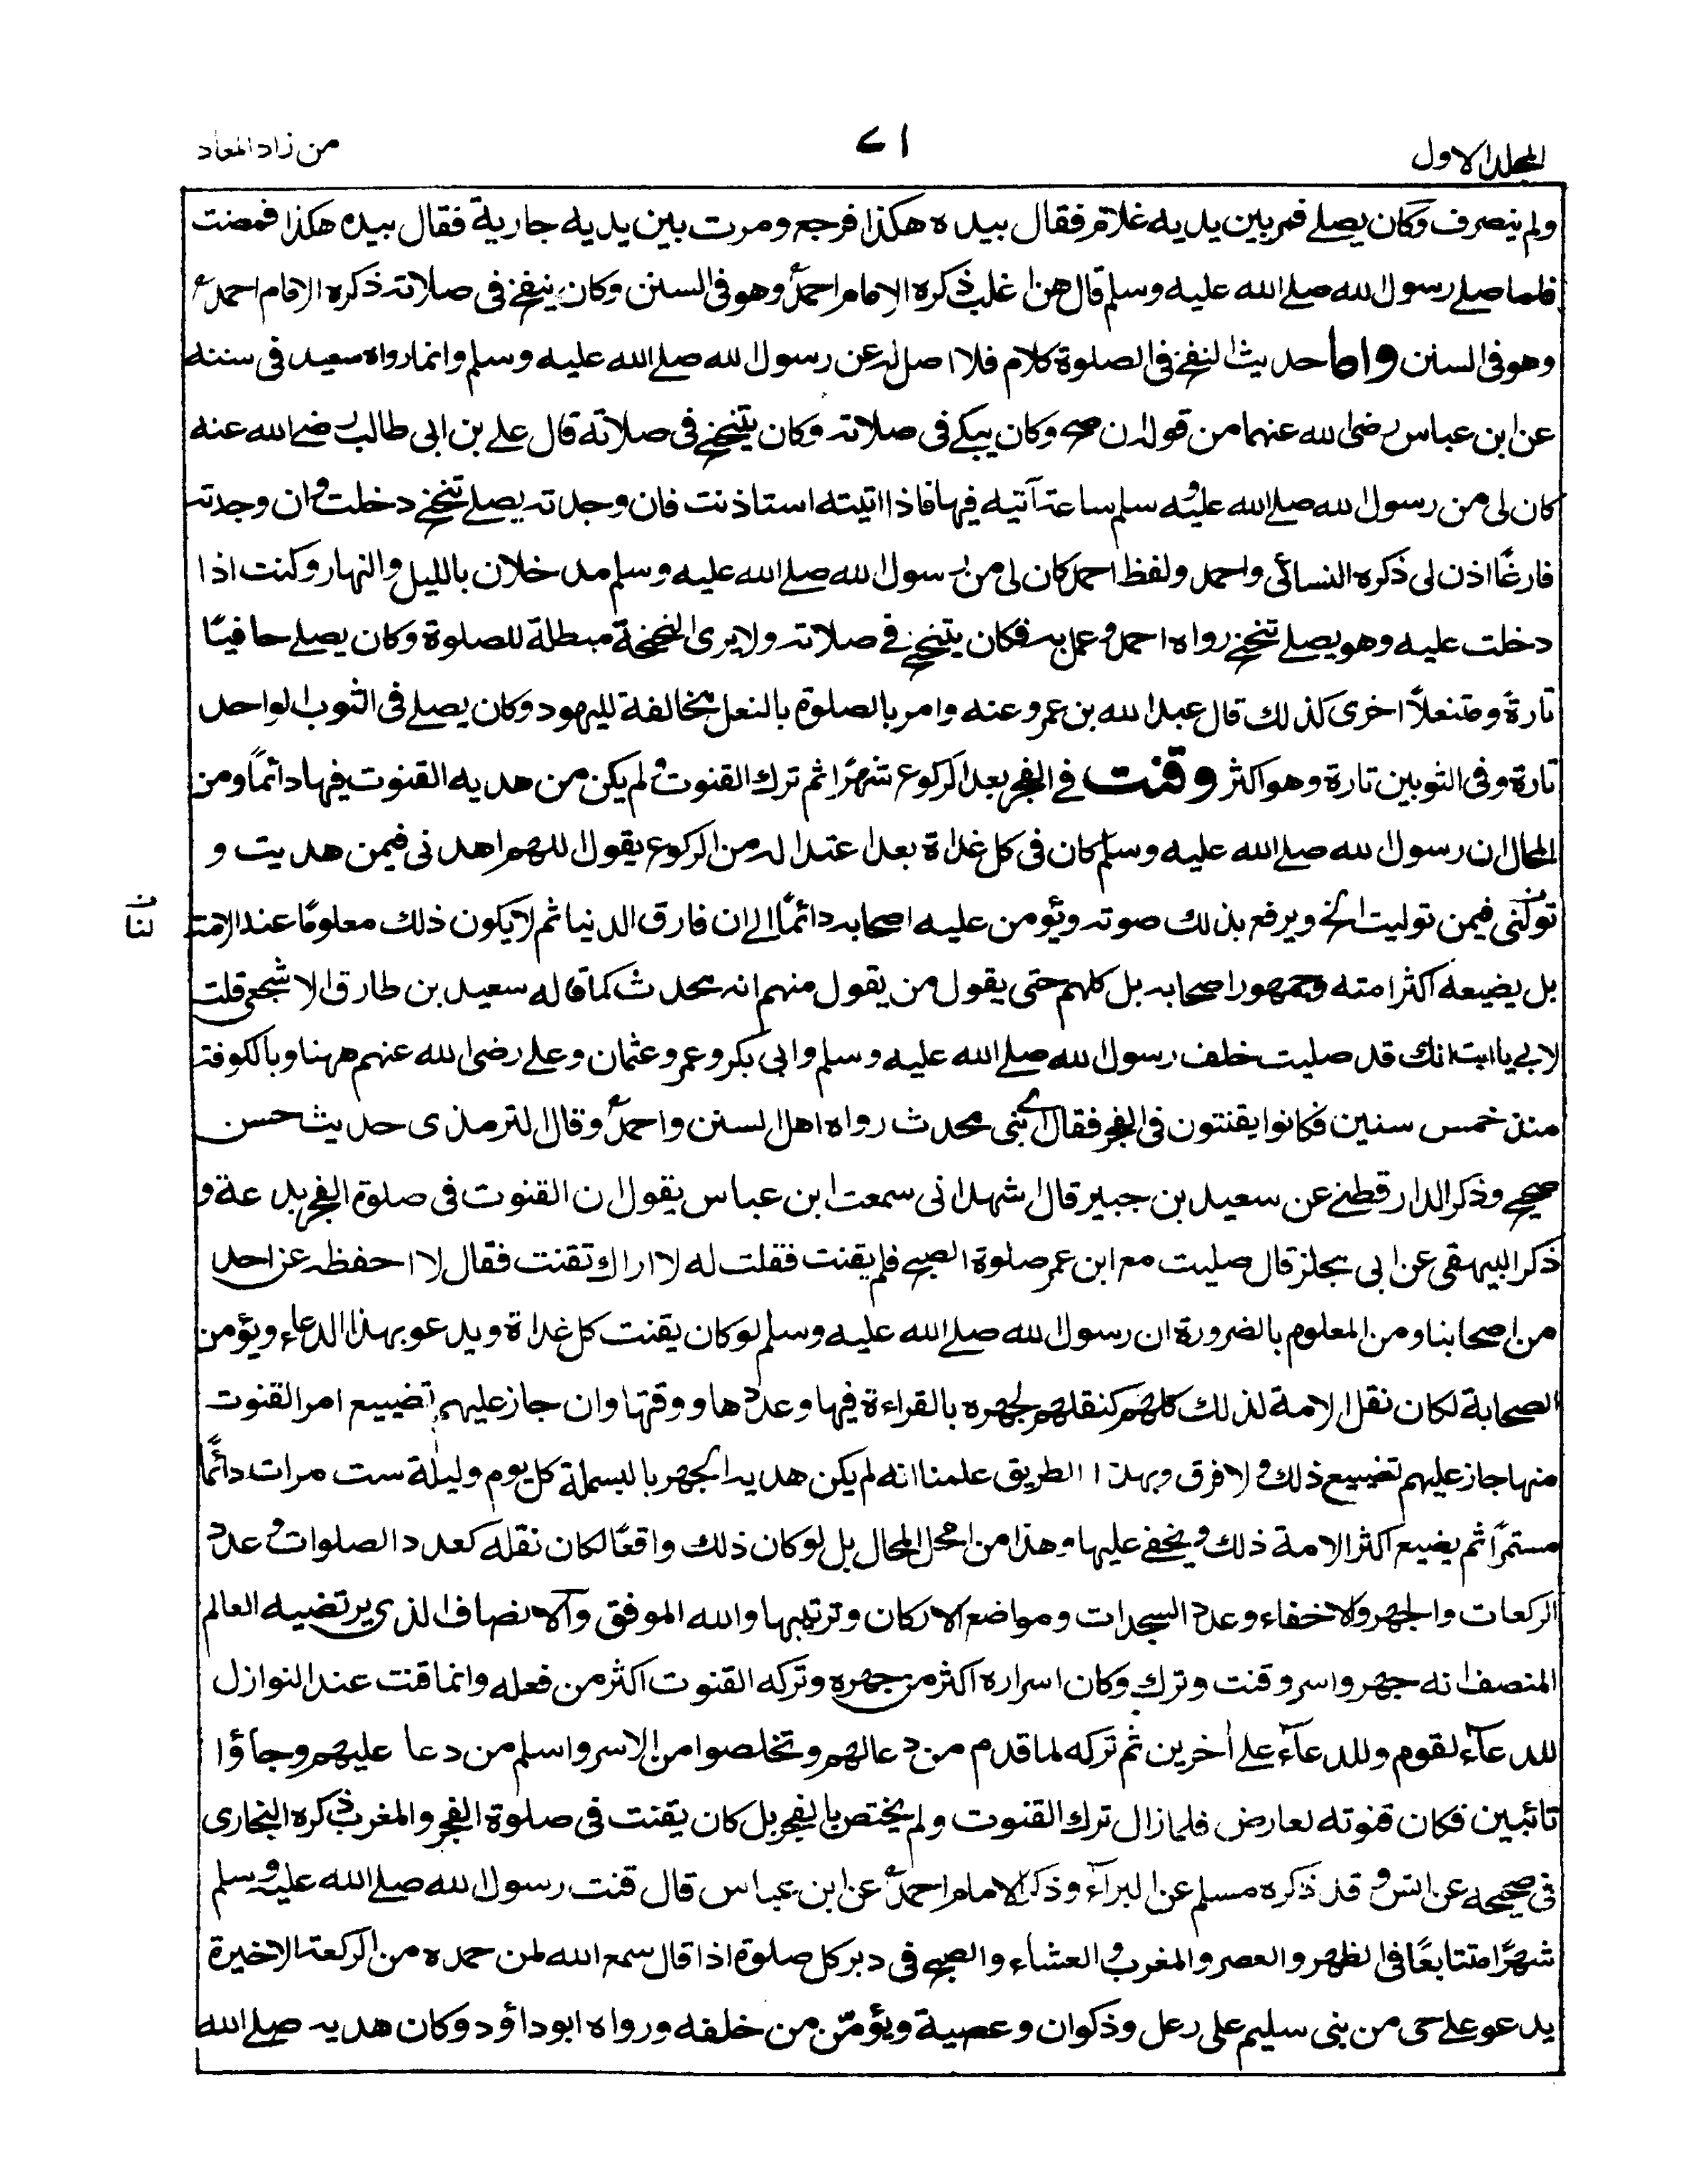 المجلد الاول
٧١
من زاد المعاد
ولم ينصرف وكان يصلے فمر بين يديه غلام فقال بيده هكذا فرجع ومرت بين يديه جارية فقال بيده هكذا فمضت
فلما صلے رسول الله صلے الله عليه وسلم قال هن اغلب ذكره الامام احمدؒ وهو فى السنن وكان ينفخ فى صلاته ذكره الامام احمدؒ
وهو فى السنن واما حديث النفخ فى الصلوة كلام فلا اصل له عن رسول الله صلے الله عليه وسلم وانما رواه سعيد فى سننه
عن ابن عباس رضى الله عنهما من قوله ان صح وكان يبكے فى صلاته وكان يتنحنح فى صلاتة قال علے بن ابى طالب رضى الله عنه
كان لى من رسول الله صلے الله عليه وسلم ساعة آتيه فيها فاذا اتيته استاذنت فان وجدته يصلے تنحنح دخلت وان وجدته
فارغًا اذن لى ذكره النسائى واحمد ولفظ احمد كان لى من رسول الله صلے الله عليه وسلم مدخلان بالليل والنهار وكنت اذا
دخلت عليه وهو يصلے تنحنح رواه احمد وعمل به فكان يتنحنح فى صلاته ولا يرى النحنحة مبطلة للصلوة وكان يصلے حافيًا
تارةً ومتنعلاً اخرى كذلك قال عبد الله بن عمرو عنه وامر بالصلوة بالنعل مخالفة لليهود وكان يصلے فى الثوب الواحد
تارة وفى الثوبين تارة وهو اكثر وقنت فے الفجر بعد الركوع شهرًا ثم ترك القنوت ولم يكن من هديه القنوت فيها دائمًا ومن
المحال ان رسول الله صلے الله عليه وسلم كان فى كل غداة بعد اعتداله من الركوع يقول اللهم اهدنى فيمن هديت و
تولنى فيمن توليت الخ ويرفع بذلك صوته ويؤمن عليه اصحابه دائمًا الے ان فارق الدنيا ثم لا يكون ذلك معلومًا عند الامة
بل يضيعه اكثر امته وجمهور اصحابه بل كلهم حتى يقول من يقول منهم انه محدث كما قاله سعيد بن طارق الاشجعى قلت
لابے يا ابت انك قد صليت خلف رسول الله صلے الله عليه وسلم وابى بكر وعمر وعثمان وعلے رضى الله عنهم ههنا وبالكوفة
منذ خمس سنين فكانوا يقنتون فى الفجر فقال اے بنى محدث رواه اهل السنن واحمدؒ وقال الترمذى حديث حسن
صحيح وذكر الدارقطنے عن سعيد بن جبير قال اشهد انى سمعت ابن عباس يقول ان القنوت فى صلوة الفجر بدعة و
ذكر البيهقى عن ابى مجلز قال صليت مع ابن عمر صلوة الصبح فلم يقنت فقلت له لا اراك تقنت فقال لا احفظه عن احد
من اصحابنا ومن المعلوم بالضرورة ان رسول الله صلے الله عليه وسلم لو كان يقنت كل غداة ويدعو بهذا الدعاء ويؤمن
الصحابة لكان نقل الامة لذلك كلهم كنقلهم لجهره بالقراءة فيها وعددها ووقتها وان جاز عليهم تضييع امر القنوت
منها جاز عليهم تضييع ذلك ولا فرق وبهذا الطريق علمنا انه لم يكن هديه الجهر بالبسملة كل يوم وليلة ست مرات دائمًا
مستمرًا ثم يضيع اكثر الامة ذلك ويخفے عليها وهذا من امحل المحال بل لو كان ذلك واقعًا لكان نقله كعدد الصلوات وعدد
الركعات والجهر والاخفاء وعدد السجدات ومواضع الاركان وترتيبها والله الموفق والانصاف الذى يرتضيه العالم
المنصف انه جهر واسر وقنت وترك وكان اسراره اكثر من جهره وتركه القنوت اكثر من فعله وانما قنت عند النوازل
للدعآء لقوم وللدعآء علے اٰخرين ثم تركه لما قدم من دعا لهم وتخلصوا من الاسر واسلم من دعا عليهم وجآؤا
تائبين فكان قنوته لعارض فلما زال ترك القنوت ولم يختص بالفجر بل كان يقنت فى صلوة الفجر والمغرب ذكره البخارى
فى صحيحه عن انس وقد ذكره مسلم عن البرآء وذكر الامام احمدؒ عن ابن عباس قال قنت رسول الله صلے الله عليه وسلم
شهرًا متتابعًا فى الظهر والعصر والمغرب والعشاء والصبح فى دبر كل صلوة اذا قال سمع الله لمن حمده من الركعة الاخيرة
يدعو علے حى من بنى سليم على رعل وذكوان وعصية ويؤمّن من خلفه ورواه ابو داؤد وكان هديه صلے الله